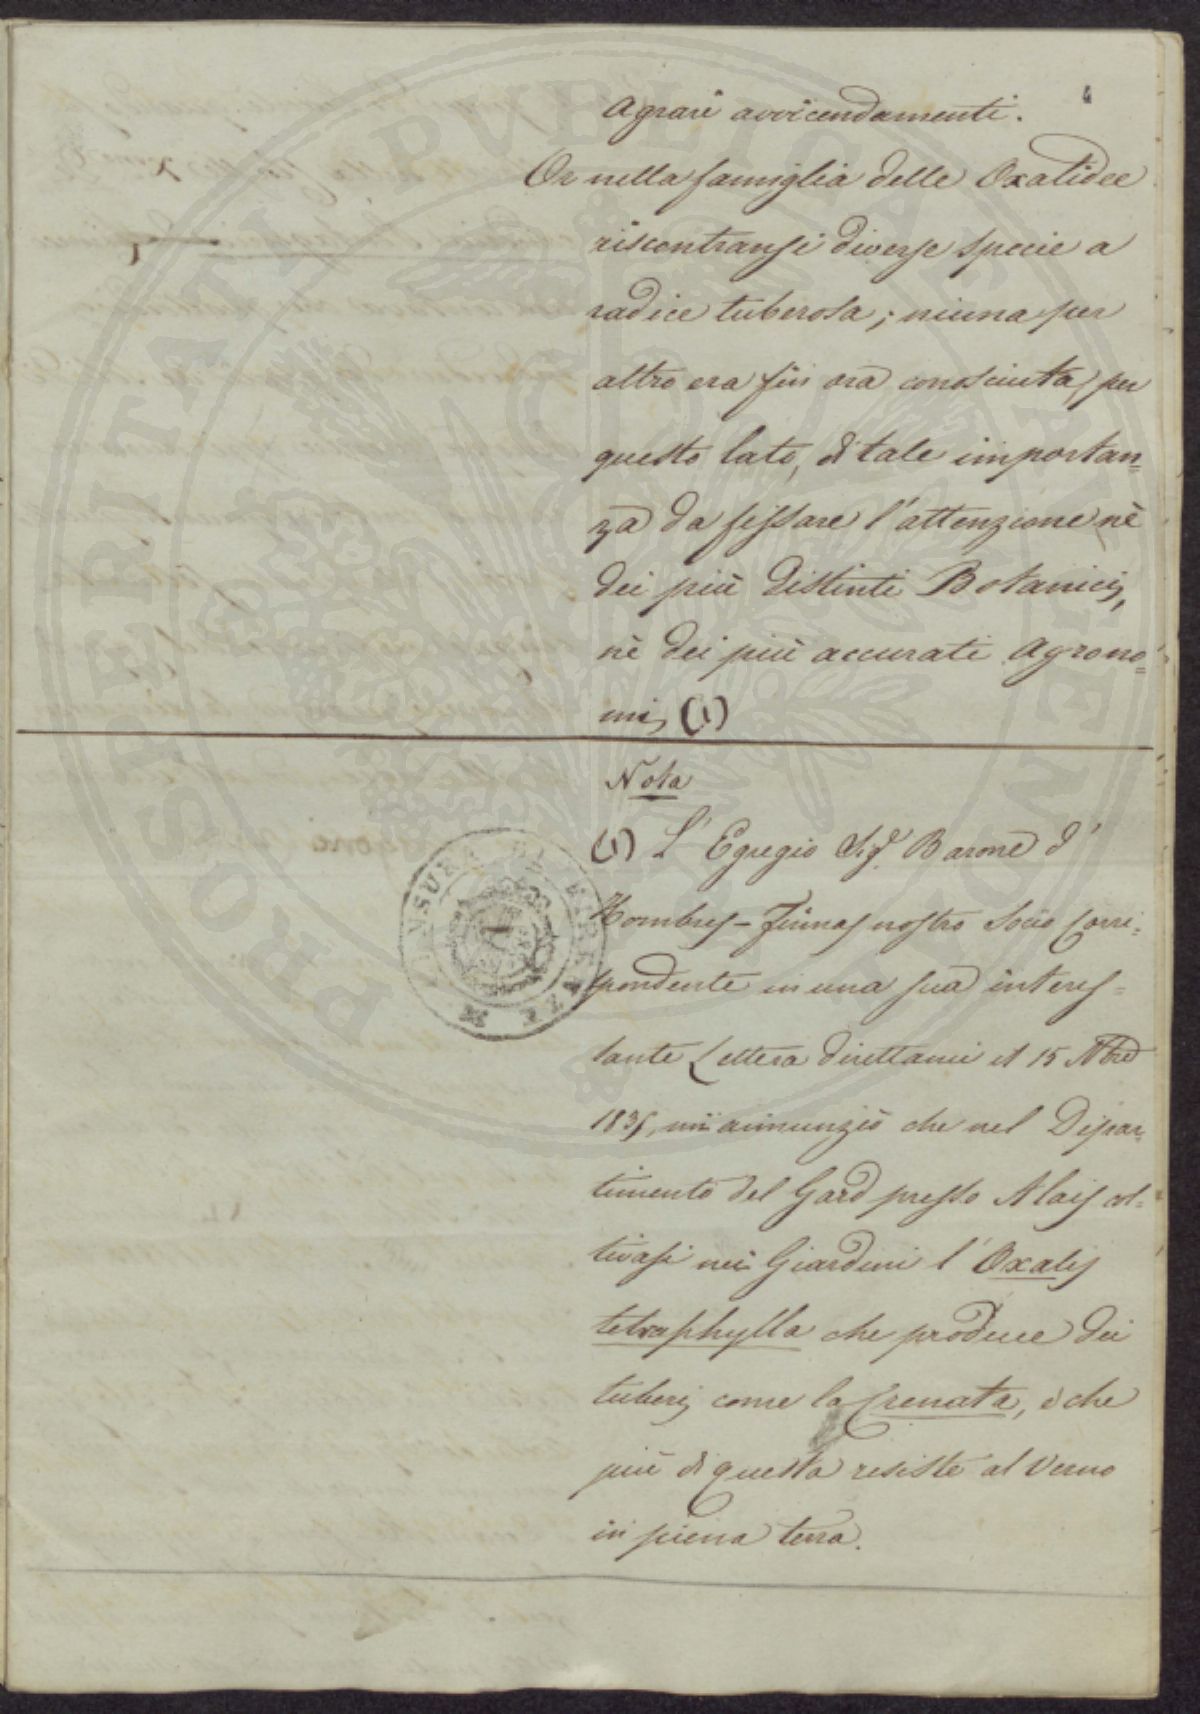 4
agrari avvicendamenti.
Or nella famiglia delle Oxalidee
riscontransi diverse specie a
radice tuberosa; niuna per
altro era fin ora conosciuta, per
questo lato, di tale importan=
za da fissare l'attenzione nè
dei più distinti Botanici,
nè dei più accurati Agrono=
mi, (1)
Nota
(1) L'Egregio Sigr. Barone d'
Hombres-Firmas nostro Socio Corri=
spondente in una sua interes=
sante Lettera direttami il 15 9bre
183, mi annunziò che nel Dipar=
timento del Gard presso Alais col=
tivasi nei Giardini l'Oxalis
tetraphylla che produce dei
tuberi, come la Crenata, e che
più di questa resiste al Verno
in piena terra.
PROSPERITATI PVBLICAE AVGENDAE